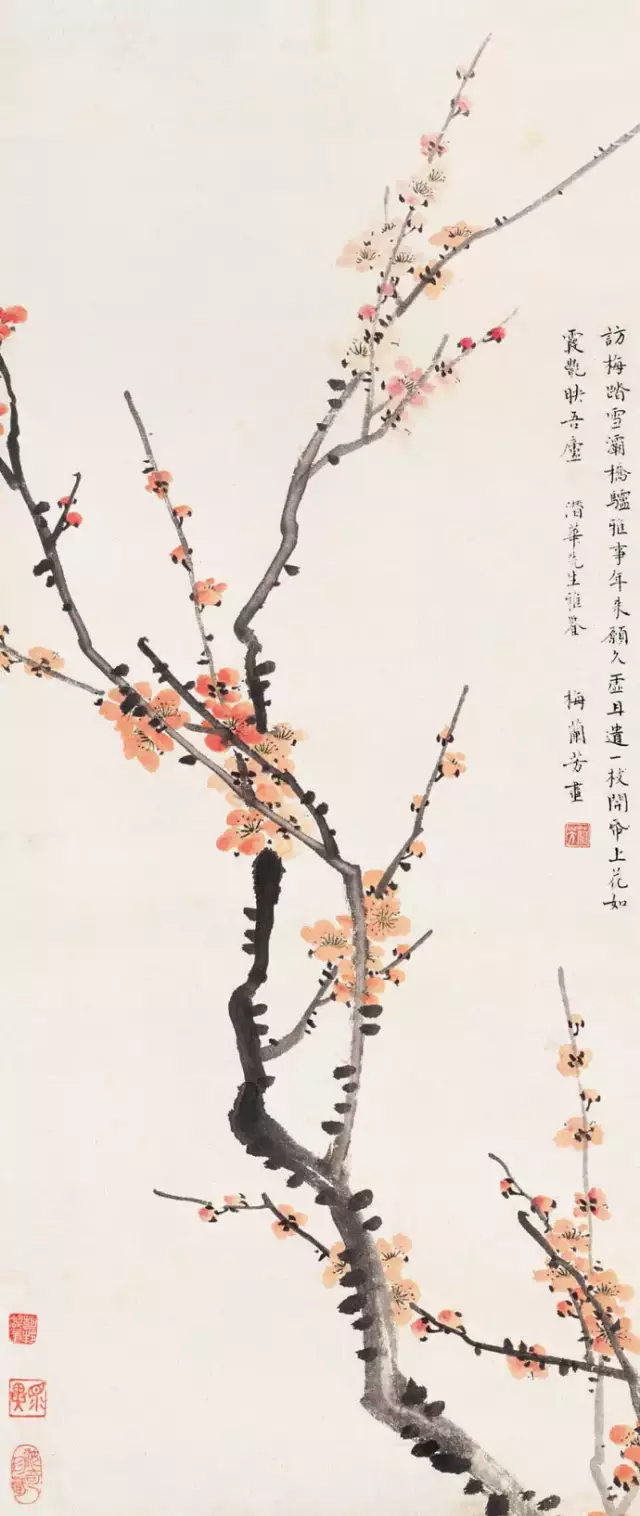 訪梅踏雪灞橋驢雅事年来願久虛且遣一枝開帋上花如
霞豔映吾廬 潛華先生雅鑒 梅蘭芳畫